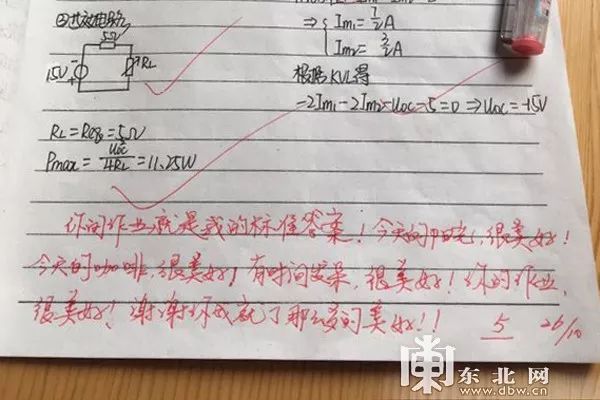 ⇒ { Im₁ = 7/2 A
Im₂ = 3/2 A
②等效电路
5Ω
15V
RL
根据KVL得
-2Im₁-2Im₂-Uoc-5=0 ⇒ Uoc=-15V
RL=Req=5Ω
Pmax= Uoc²/4RL =11.25W
你的作业就是我的标准答案！今天的阳光，很美好！
今天的咖啡，很美好！有时间发呆，很美好！你的作业，
很美好！谢谢你成就了那么多的美好！！
5 26/10
东北网
www.dbw.cn